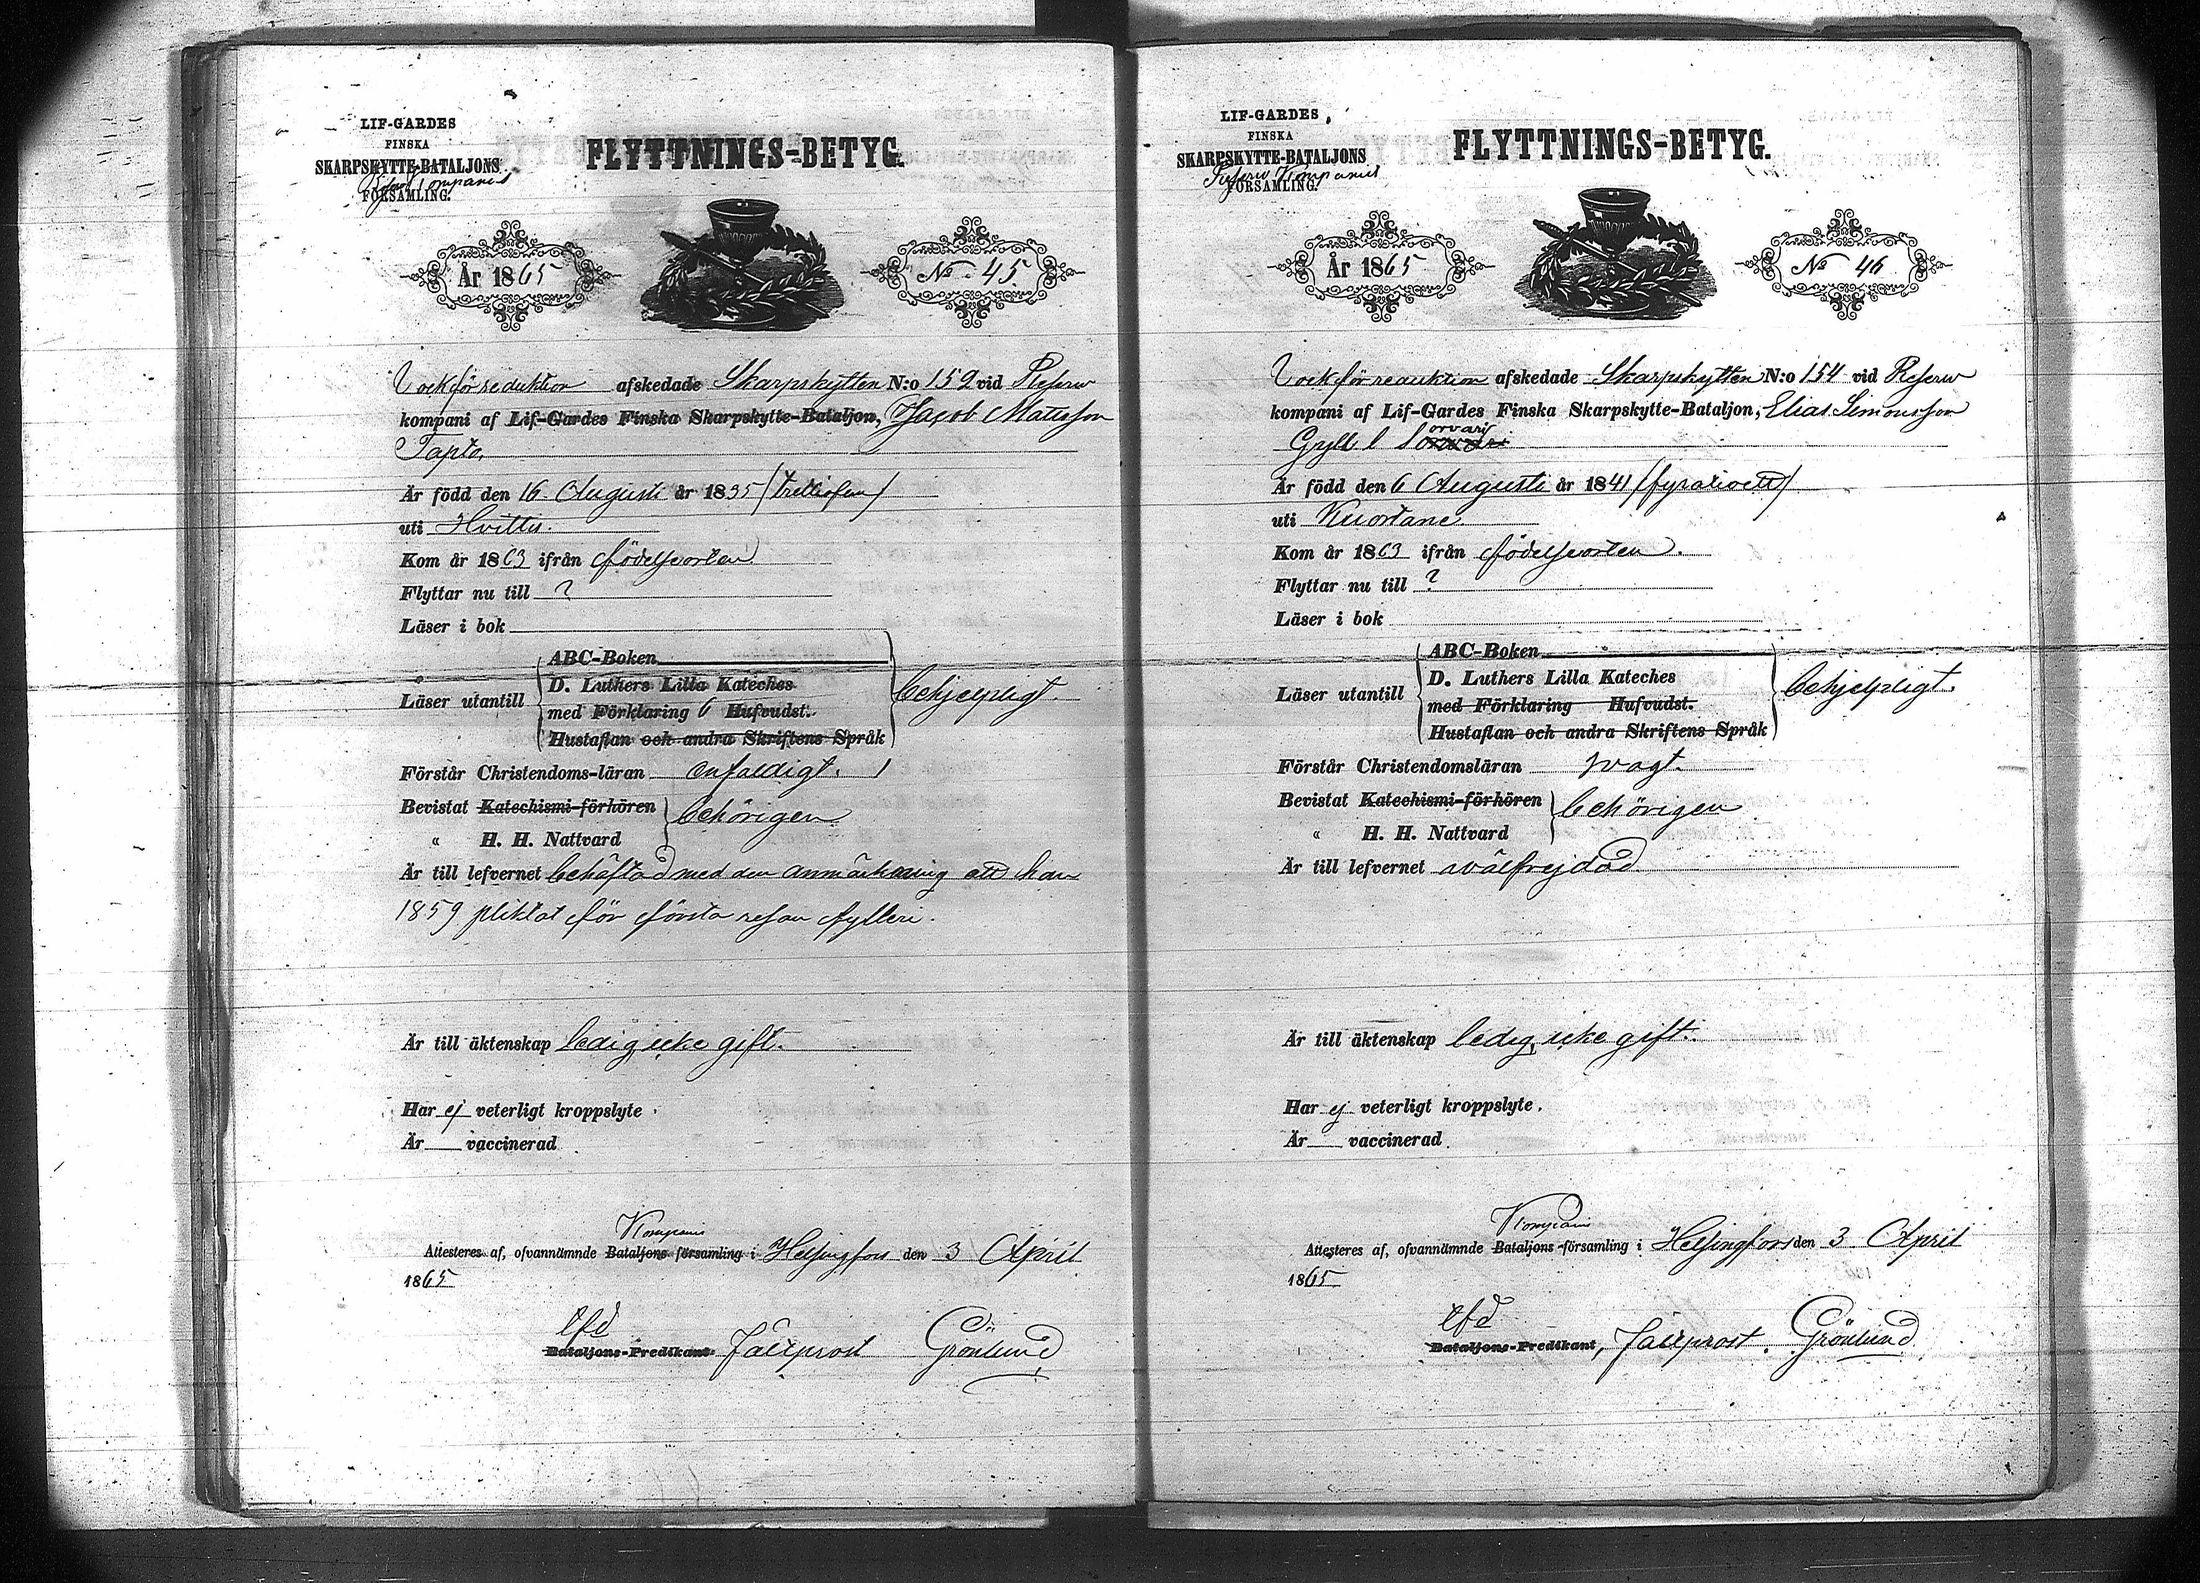 LIF-GARDES
FINSKA
SKARPSKYTTE-BATALJONS
Reserv Kompanis
FÖRSAMLING.
FLYTTNINGS-BETYG.
År 1865
No 45.
V ock för reduktion afskedade Skarpskytten N:o 159 vid Reserv
kompani af Lif-Gardes Finska Skarpskytte-Bataljon, Jacob Matsson
Tapto.
Är född den 16 Augusti år 1835 (trettiofem)
uti Hvittis.
Kom år 1863 ifrån födelseorten
Flyttar nu till ?
Läser i bok
Läser utantill
ABC-Boken
D. Luthers Lilla Kateches
med Förklaring 6 Hufvudst.
Hustaflan och andra Skriftens Språk
behjelpligt.
Förstår Christendoms-läran enfaldigt.
Bevistat Katechismi-förhören
" H. H. Nattvard
behörigen
Är till lefvernet behäftad med den anmärkning att han
1859 pliktat för första resan fylleri.
Är till äktenskap ledig, icke gift.
Har ej veterligt kroppslyte.
Är vaccinerad
Kompanis
Attesteres af, ofvannämnde Bataljons-församling i Helsingfors den 3 April
1865
efd
Bataljons-Predikant. Fältprost Grönlund
LIF-GARDES
FINSKA
SKARPSKYTTE-BATALJONS
Reserv Kompanis
FÖRSAMLING.
FLYTTNINGS-BETYG.
År 1865
No 46
V ock för reduktion afskedade Skarpskytten N:o 154 vid Reserv
kompani af Lif-Gardes Finska Skarpskytte-Bataljon, Elias Simonsson
orvari
Gryll l.
Är född den 6 Augusti år 1841 (fyratioett)
uti Kuortane
Kom år 1863 ifrån födelseorten.
Flyttar nu till ?
Läser i bok
Läser utantill
ABC-Boken
D. Luthers Lilla Kateches
med Förklaring Hufvudst.
Hustaflan och andra Skriftens Språk
behjelpligt.
Förstår Christendomsläran svagt.
Bevistat Katechismi-förhören
" H. H. Nattvard
behörigen
Är till lefvernet wälfrejdad
Är till äktenskap ledig, icke gift.
Har ej veterligt kroppslyte.
Är vaccinerad
Kompanis
Attesteres af, ofvannämnde Bataljons-församling i Helsingfors den 3 April
1865
efd
Bataljons-Predikant, Fältprost. Grönlund